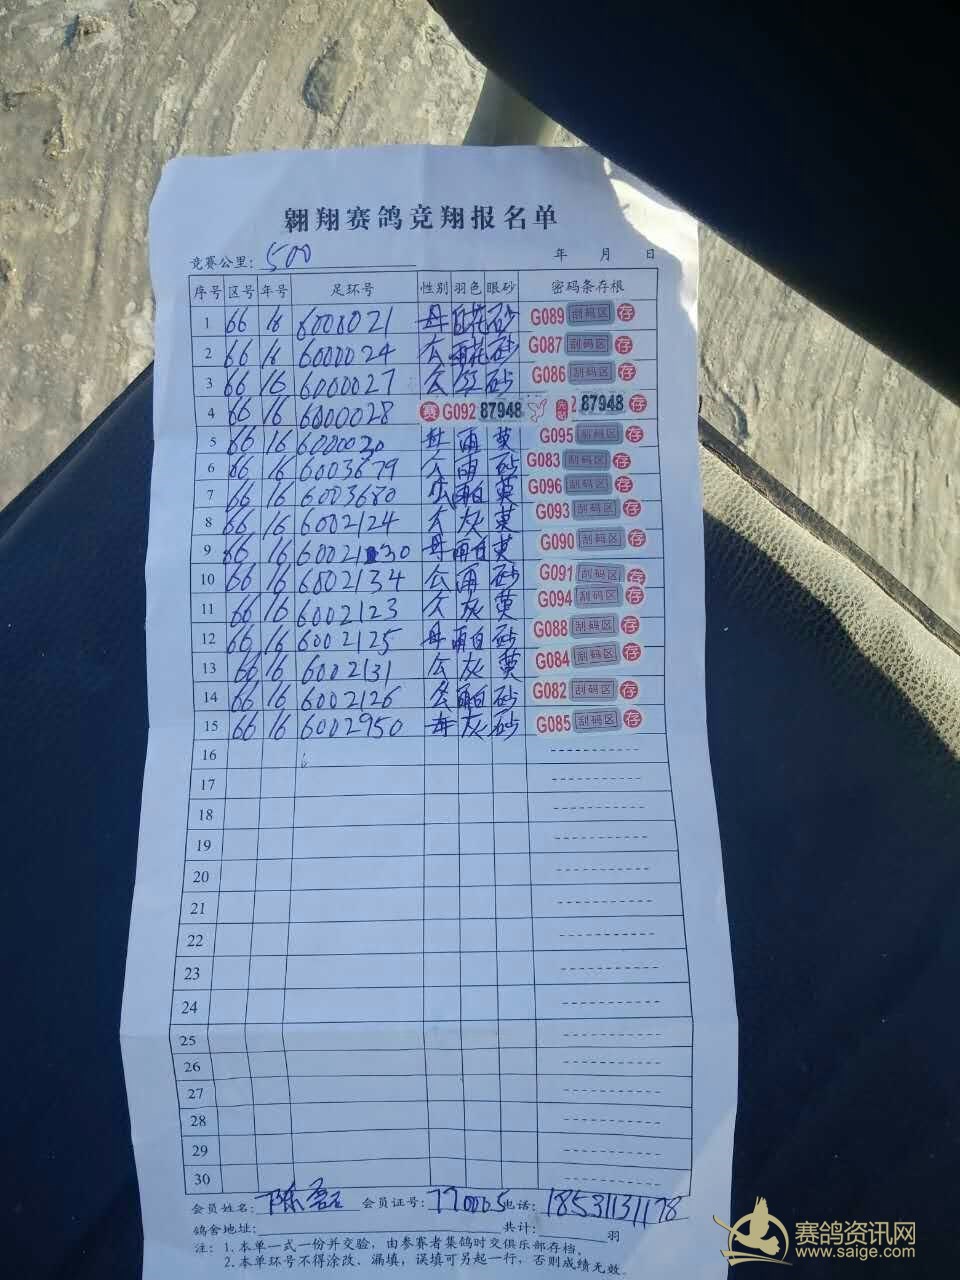 翱翔赛鸽竞翔报名单
竞赛公里: 500 年 月 日
序号 区号 年号 足环号 性别 羽色 眼砂 密码条存根
1 66 16 6000021 母 砂 G089 刮码区 存
2 66 16 6000024 公 雨花 砂 G087 刮码区 存
3 66 16 6000027 公 红 砂 G086 刮码区 存
4 66 16 6000028 赛 G092 87948 87948 存
5 66 16 6000030 母 雨 黄 G095 刮码区 存
6 66 16 6003679 公 雨 砂 G083 刮码区 存
7 66 16 6003680 公 雨白 黄 G096 刮码区 存
8 66 16 6002124 公 灰 黄 G093 刮码区 存
9 66 16 母 雨白 黄 G090 刮码区 存
10 66 16 6002134 公 雨 砂 G091 刮码区 存
11 66 16 6002123 公 灰 黄 G094 刮码区 存
12 66 16 6002125 母 雨白 砂 G088 刮码区 存
13 66 16 6002131 公 灰 黄 G084 刮码区 存
14 66 16 6002126 公 雨白 砂 G082 刮码区 存
15 66 16 6002950 母 灰 砂 G085 刮码区 存
16
17
18
19
20
21
22
23
24
25
26
27
28
29
30
会员姓名: 陈磊 会员证号: 770065 电话: 18531131178
鸽舍地址: 共计: 羽
注: 1.本单一式一份并交验，由参赛者集鸽时交俱乐部存档。
2.本单环号不得涂改、漏填，误填可另起一行，否则成绩无效。
赛鸽资讯网
www.saige.com